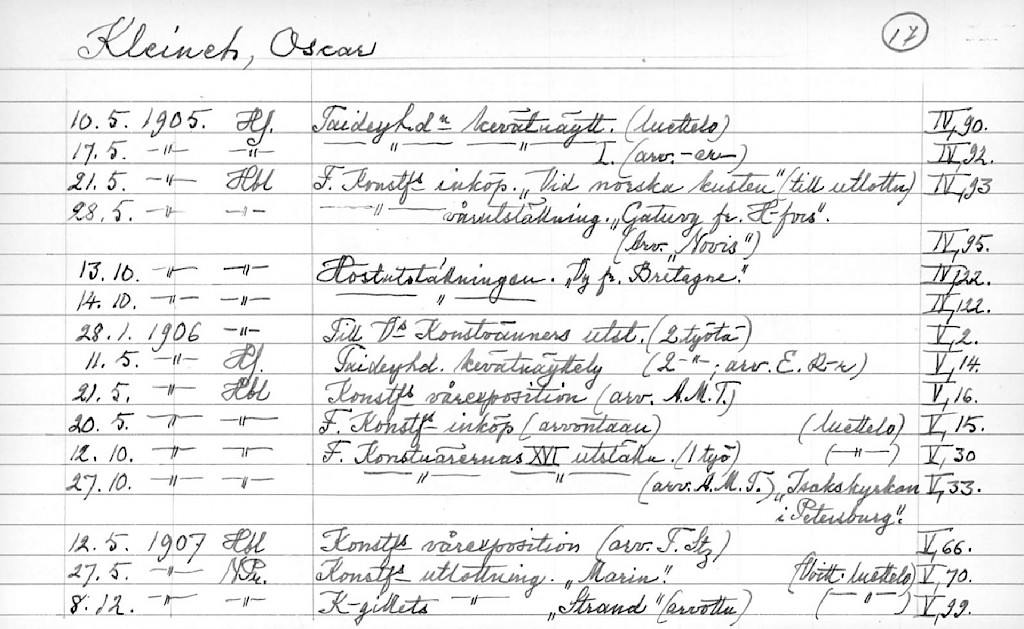 Kleineh, Oscar 17
10.5. 1905. Hf. Taideyhd:n kevätnäytt. (luettelo) IV, 90.
17.5. -"- -"- -"- I. (arv. -er-) IV, 92.
21.5. -"- Hbl F. Konstfs inköp. „Vid norska kusten" (till utlottn) IV, 93
28.5. -"- -"- -"- vårutställning. „Gatuvy fr. H-fors".
(Arv. „Novis") IV, 95.
13.10. -"- -"- Höstutställningen. „Vy fr. Bretagne." IV, 122.
14.10. -"- -"- -"- IV, 122.
28.1. 1906 -"- Till Vs Konstvänners utst. (2 työtä) V, 2.
11.5. -"- Hf. Taideyhd. kevätnäyttely (2 -"-; arv. E. R-r) V, 14.
21.5. -"- Hbl Konstfs vårexposition (arv. A.M.T.) V, 16.
20.5 -"- -"- F. Konstfs inköp (arvontaan) (luettelo) V, 15.
12.10. -"- -"- F. Konstnärernas XVI utställn. (1 työ) (-"-) V, 30
27.10. -"- -"- -"- -"- (arv. A.M.T.) „Isakskyrkan V, 33.
i Petersburg".
12.5. 1907 Hbl Konstfs vårexposition (arv. T. Stz) V, 66.
27.5. -"- NPr. Konstfs utlottning. „Marin". (Voitt. luettelo) V, 70.
8.12. -"- -"- K-gillets -"- „Strand" (arvottu) (-"-) V, 99.